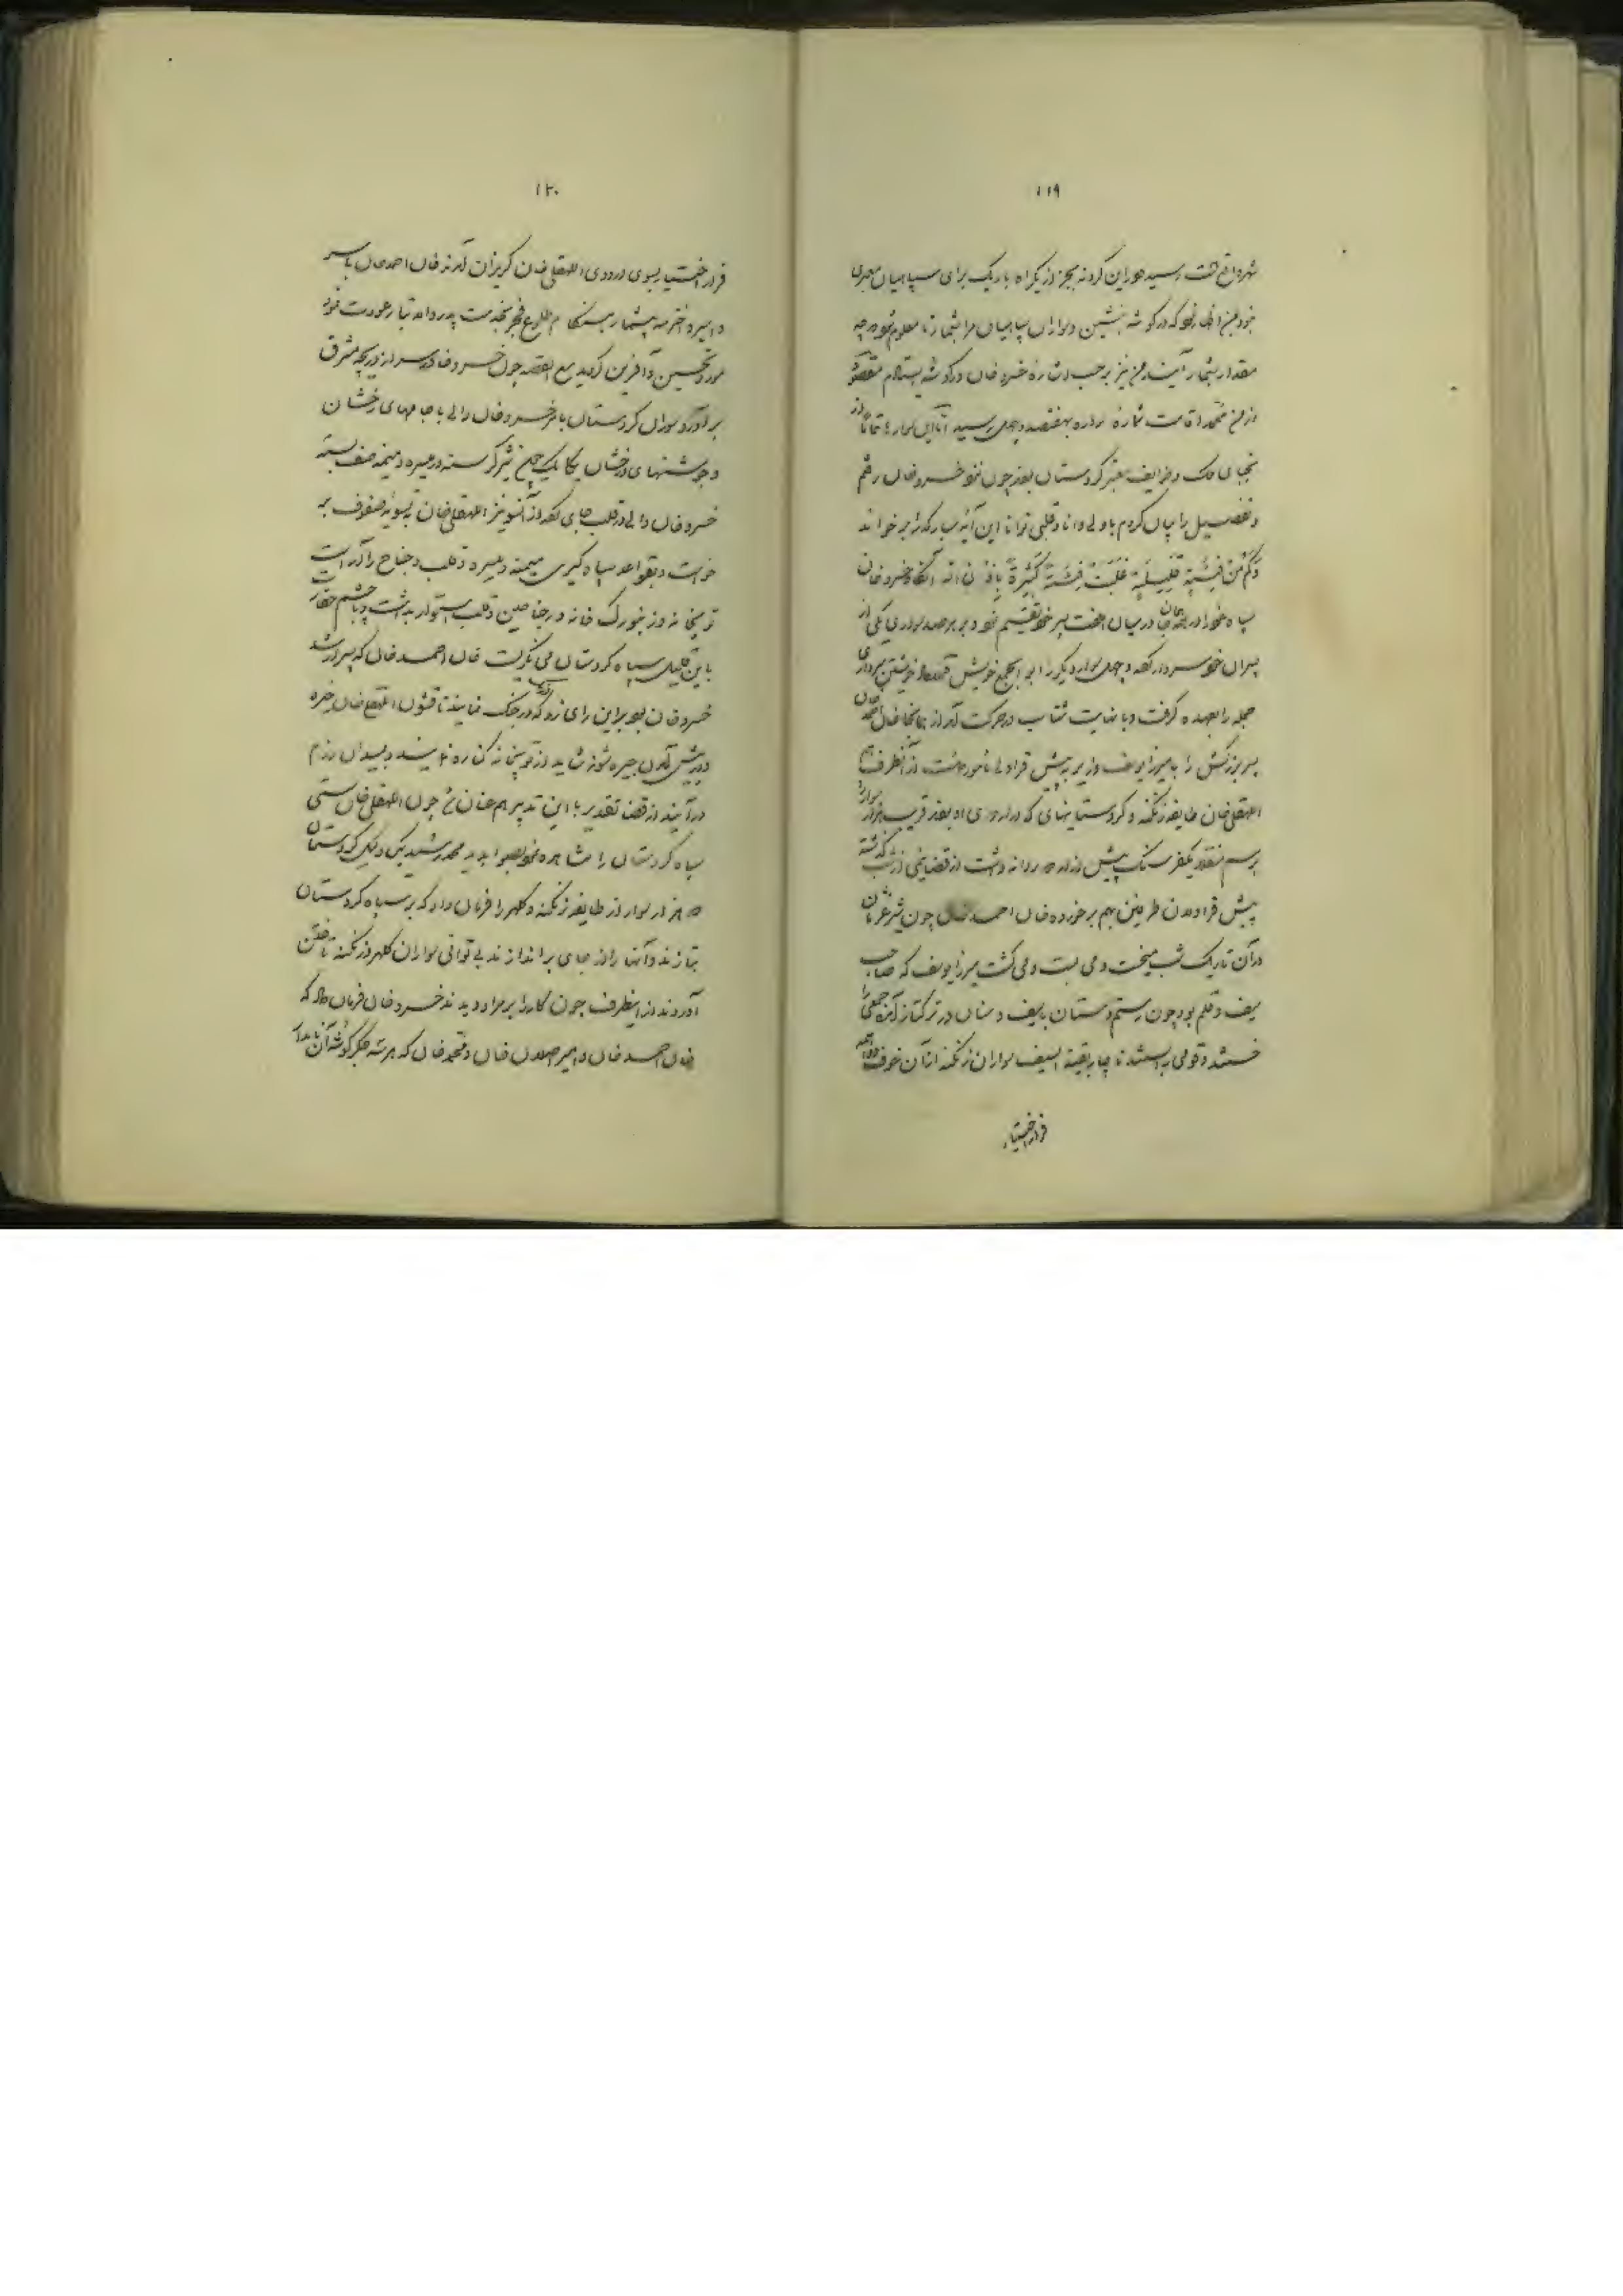 ۱۱۹
شهر واقع است رسید در این گردنه بجز از یکراه باریک برای سپاهیان معبری
نبود بمن اظهار نمود که در گوشه بنشین و سواران سپاهیان مرا بشمار تا معلوم شود چه
مقدار بشمار آیند من نیز بر حسب اشاره خسرو خان در گوشه بیستادم مقصود
از من شماره سواره بهفتصد و چهل رسید اما این سوارها تماماً از
نجبای ملک و طوایف معتبر کردستان بودند چون نزد خسرو خان رفتم
و تفصیل را بیان کردم با دلی دانا و قلبی توانا این آیه مبارکه را بر خواند
وَکَم مِن فِئَةٍ قَلِیلَةٍ غَلَبَت فِئَةً کَثِیرَةً بِاِذنِ الله آنگاه خسرو خان
سپاه خود را در همان جا در میان هفت پسر خود تقسیم نمود و بر هر صد سواری یکی از
پسران خود سردار کرد و چهل سوار دیگر را ابواب جمع خویش
جمله را بعهده گرفت و با نهایت شتاب در حرکت آمد از همانجا خان احمد خان
پسر بزرگش را با میرزا یوسف وزیر به پیش قراولی مامور داشت از آنطرف هم
اللهقلی خان طایفه زنگنه و کردستانیهای که در اردوی او بودند قریب هزار سوار را
برسم منقلای یکفرسنگ پیش از اردو روانه داشت از قضا نیمی از شب گذشته
پیش قراولان طرفین بهم برخورده خان احمد خان چون شیر غران
در آن تاریک شب میخست و می بست و می کشت میرزا یوسف که صاحب
سیف و قلم بود چون رستم دستان با سیف و سنان در ترکتاز آمده جمعی را
خستند و قومی را بستند ناچار بقیة السیف سواران زنگنه از آن خوف
فرار اختیار
۱۲۰
فرار اختیار بسوی اردوی اللهقلی خان گریزان آمدند خان احمد خان با سر
و اسیر و اخترمه بیشمار هنگام طلوع فجر بخدمت پدر والاتبار عودت نمود
مورد تحسین و آفرین گردید مع القصه چون خسرو خاور سر از دریچه مشرق
برآورد سواران کردستان با مر خسرو خان والی با جامهای رخشان
و جوشنهای درخشان یکایک چون شیر گرسنه در میسره و میمنه صف بسته
خسرو خان والی در قلب جای کرد از آنسو نیز اللهقلی خان به تسویه صفوف بر
خواست و بقواعد سپاه گیری میمنه و میسره و قلب و جناح را آراست
توپخانه و زنبورک خانه در جناحین و قلب استوار بداشت و با چشم حقارت
باین قلیل سپاه کردستان می نگریست خان احمد خان که پسر ارشد
خسرو خان بود براین رای زد که در جنگ نمایند تا قشون اللهقلی خان خیره
و در پیش آمدن چیره شوند شاید از توپخانه کناره نمایند و بمیدان رزم
درآیند از قضا تقدیر با این تدبیر هم عنان شد چون اللهقلی خان سستی
سپاه کردستان را مشاهده نمود بصوابدید محمد رشید بیک وکیل کردستان
دو هزار سوار از طایفه زنگنه و کلهر را فرمان داد که بر سپاه کردستان
بتازند و آنها را از جای براندازند بی توانی سواران کلهر و زنگنه تاختن
آوردند از اینطرف چون کار را بر مراد دیدند خسرو خان فرمان داد که
خان احمد خان و امیر اصلان خان و محمد خان که هر سه جگر گوشه آن نامدار